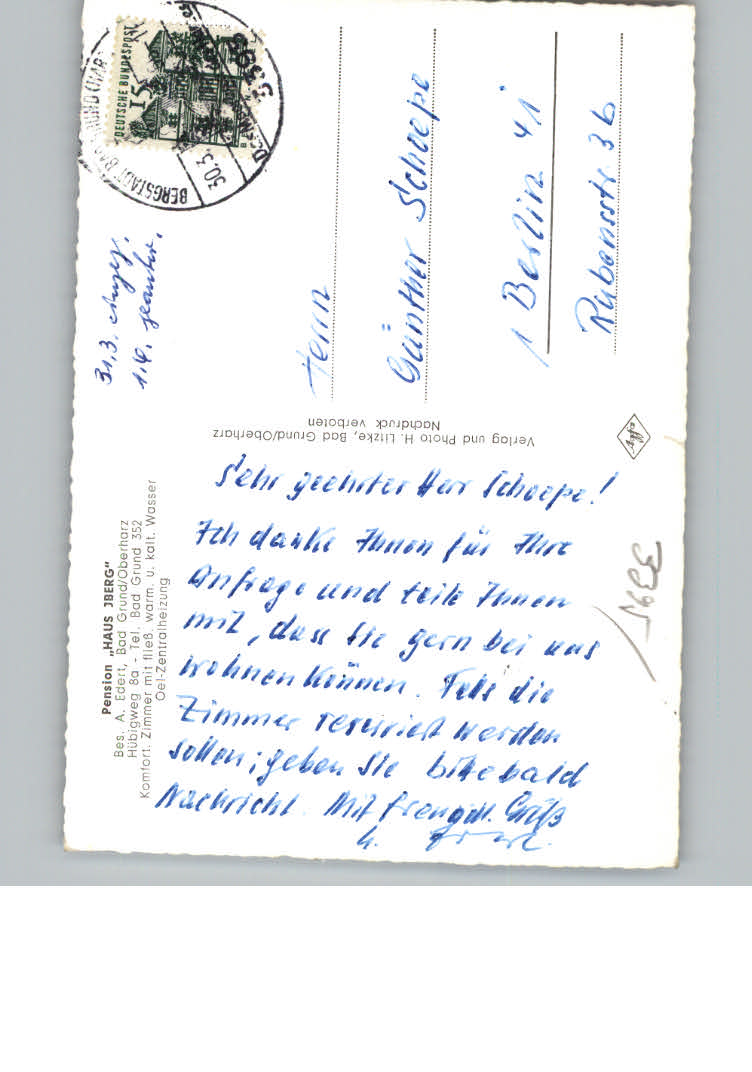 Pension „HAUS JBERG"
Bes. A. Edert, Bad Grund/Oberharz
Hübigweg 8a - Tel. Bad Grund 352
Komfort. Zimmer mit fließ. warm. u. kalt. Wasser
Oel-Zentralheizung
Sehr geehrter Herr Schoepe!
Ich danke Ihnen für Ihre
Anfrage und teile Ihnen
mit, dass Sie gern bei uns
wohnen können. Falls die
Zimmer reserviert werden
sollen, geben Sie bitte bald
Nachricht. Mit freundl. Gruß
Verlag und Photo H. Litzke, Bad Grund/Oberharz
Nachdruck verboten
31.3.
1.4.
DEUTSCHE BUNDESPOST
15
BERGSTADT BAD GRUND (HARZ
30.3.
Herrn
Günther Schoepe
1 Berlin 41
Rubensstr. 36